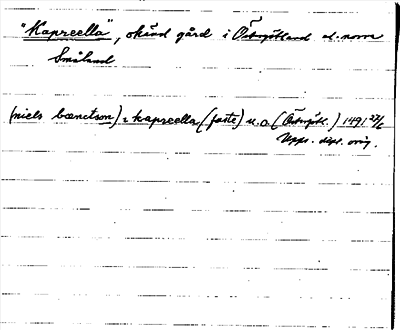 "Kapreella", okänd gård i Östergötland el. norra
Småland
(niels bænctson) i kapreella (faste) u.o (Östergötl.) 1491 27/6
Upps. dipl. orig.